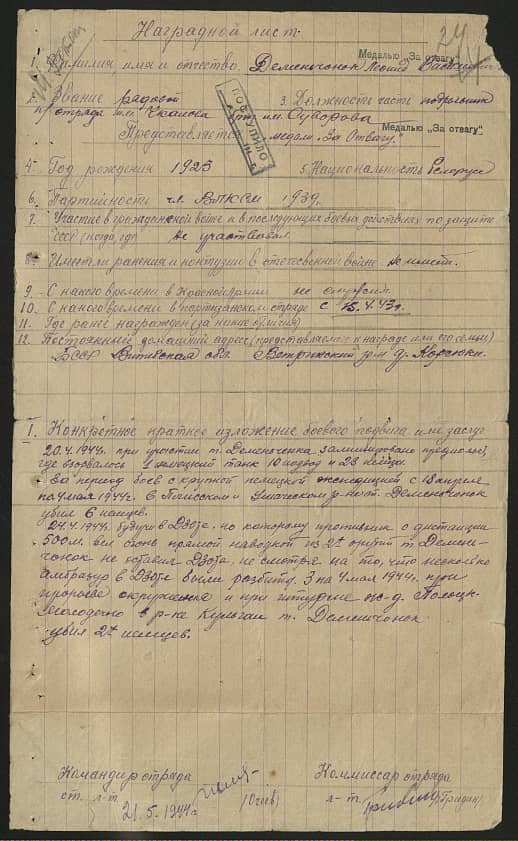 Наградной лист
24
Медалью „За отвагу"
1. Фамилия имя и отчество Деменчонок
2. Звание рядовой 3. Должность часть подрывник
отряда им. Чкалова им. Суворова
Представляется медали „За Отвагу" Медалью „За отвагу"
ПОСТУПИЛО
4. Год рождения 1923 5. Национальность Белорус
6. Партийность чл. ВЛКСМ 1939г.
7. Участие в гражданской войне и в последующих боевых действиях по защите
СССР (когда, где) не участвовал.
8. Имеет ли ранения и контузии в отечественной войне не имеет.
9. С какого времени в Красной Армии не служил
10. С какого времени в партизанском отряде с 15.4.43г.
11. Где ранее награжден (за какие отличия)
12. Постоянный домашний адрес (представляемого к награде или его семьи)
БССР Витебская обл. Ветринский р-н д.
I. Конкретное краткое изложение боевого подвига или заслуг
20.4.1944г. при участии т. Деменченка заминировано предполье,
где взорвалось 1 немецкий танк 10 подвод и 23 немца.
За период боев с крупной немецкой экспедицией с 18 апреля
по 4 мая 1944г. в и Ушачском р-нах т. Деменчонок
убил 6 немцев.
24.4.1944г. будучи в Дзоте, по которому противник с дистанции
500м. вел огонь прямой наводкой из 2х орудий т. Демен-
чонок не оставил Дзота, не смотря на то, что несколько
амбразур в Дзоте были разбиты. 3 на 4 мая 1944г. при
прорыве окружения и при штурме ж-д. Полоцк-
Молодечно в р-не т. Деменчонок
убил 2х немцев.
Командир отряда Коммиссар отряда
ст. л-т. л-т.
21.5.1944г